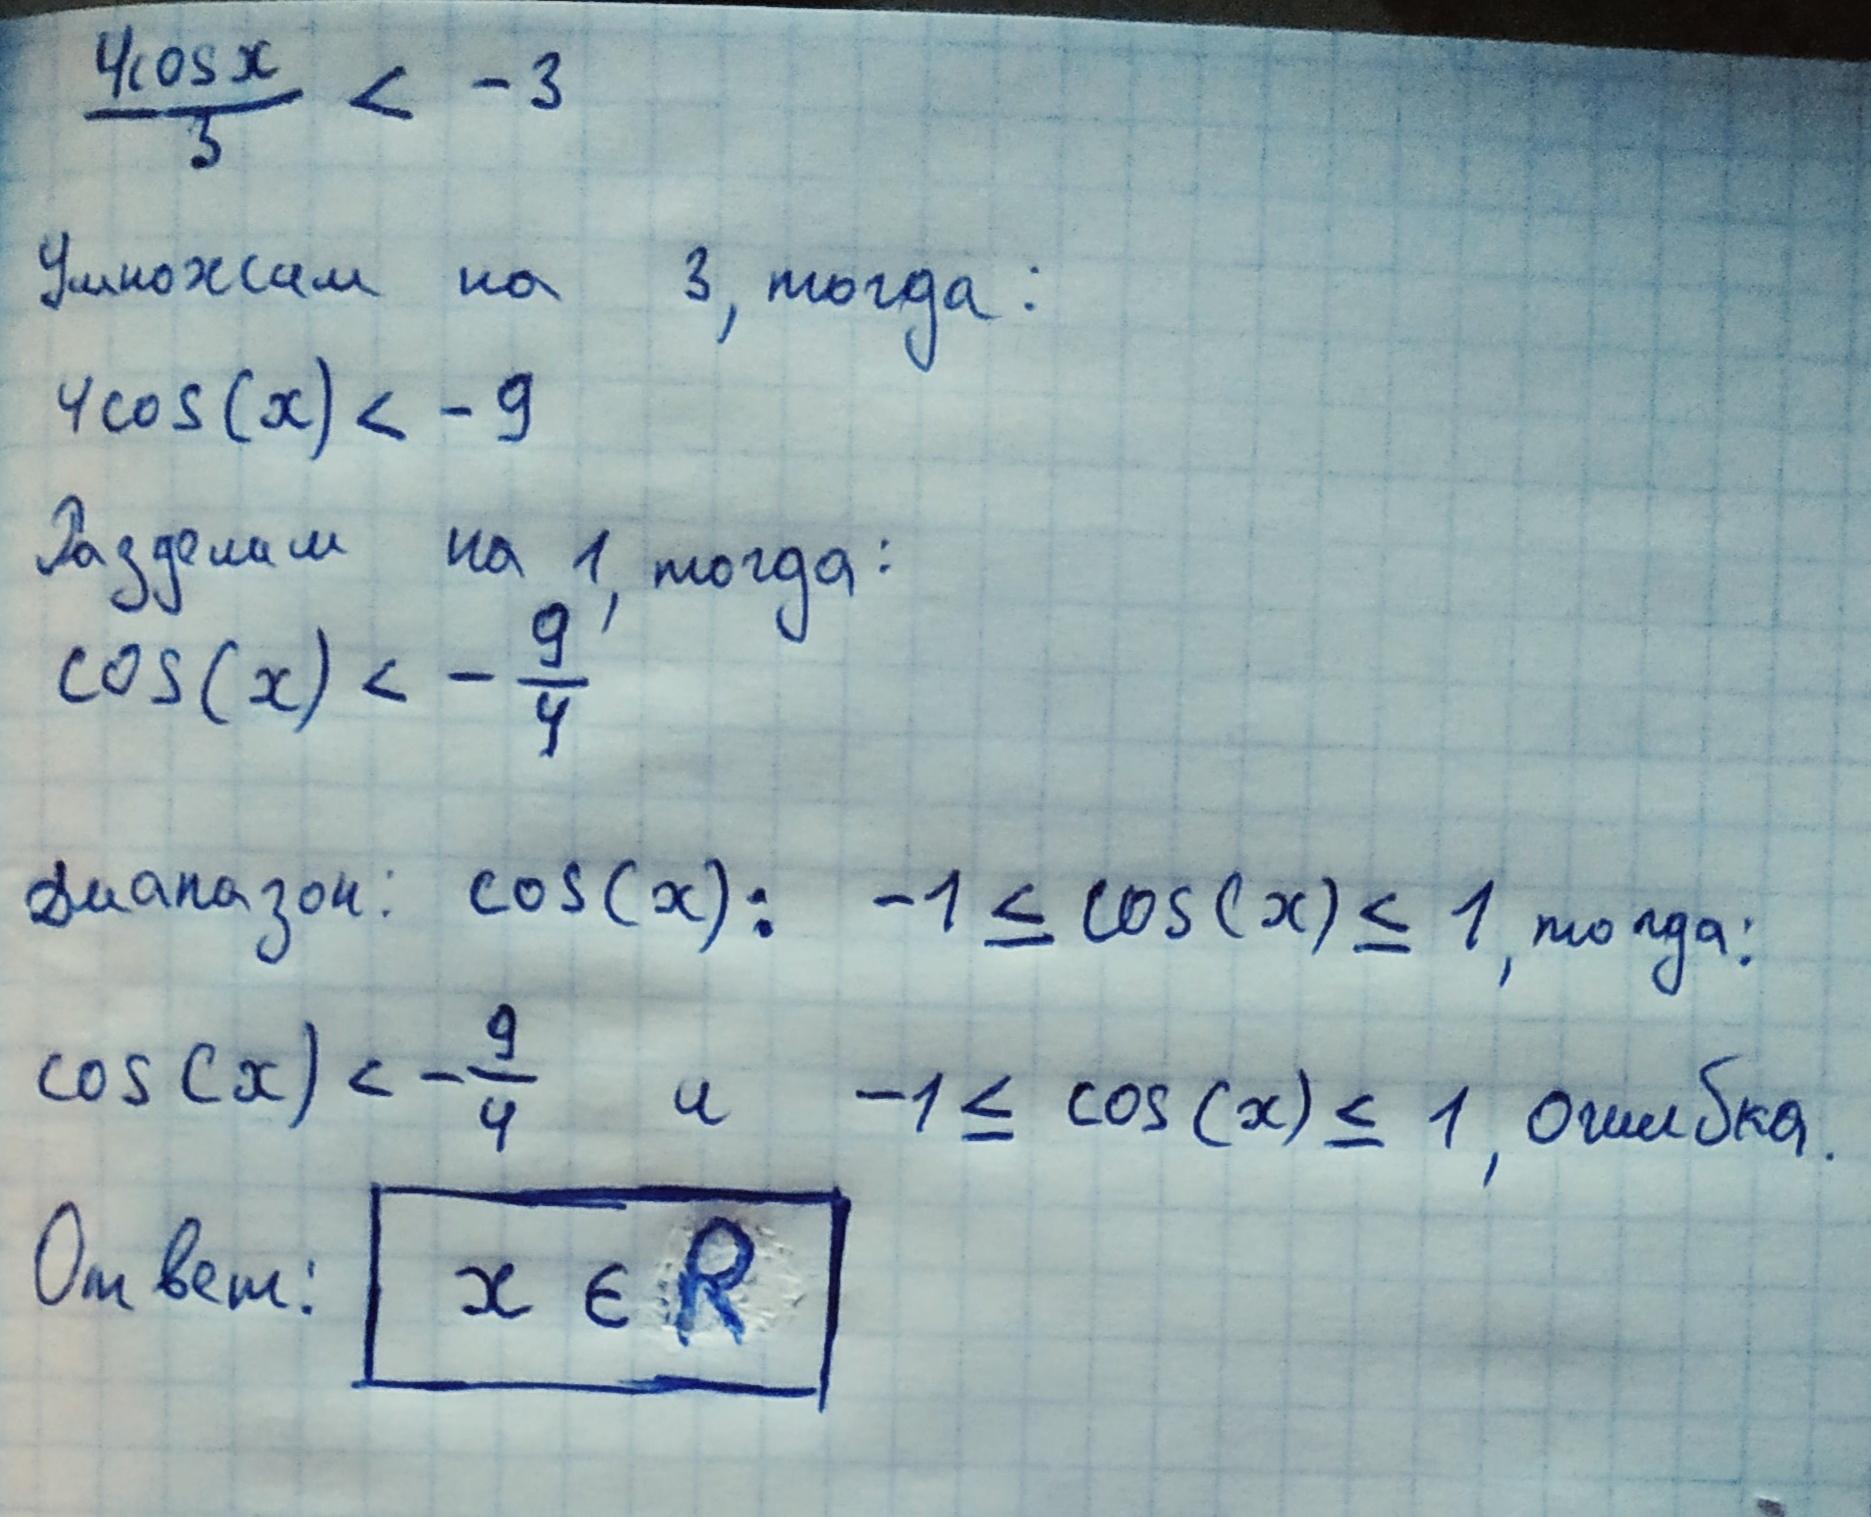 4cosx/3 < -3
Умножим на 3, тогда:
4cos(x) < -9
Разделим на 1, тогда:
cos(x) < -9/4
Диапазон: cos(x): -1 ≤ cos(x) ≤ 1, тогда:
cos(x) < -9/4 и -1 ≤ cos(x) ≤ 1, ошибка.
Ответ: x ∈ R